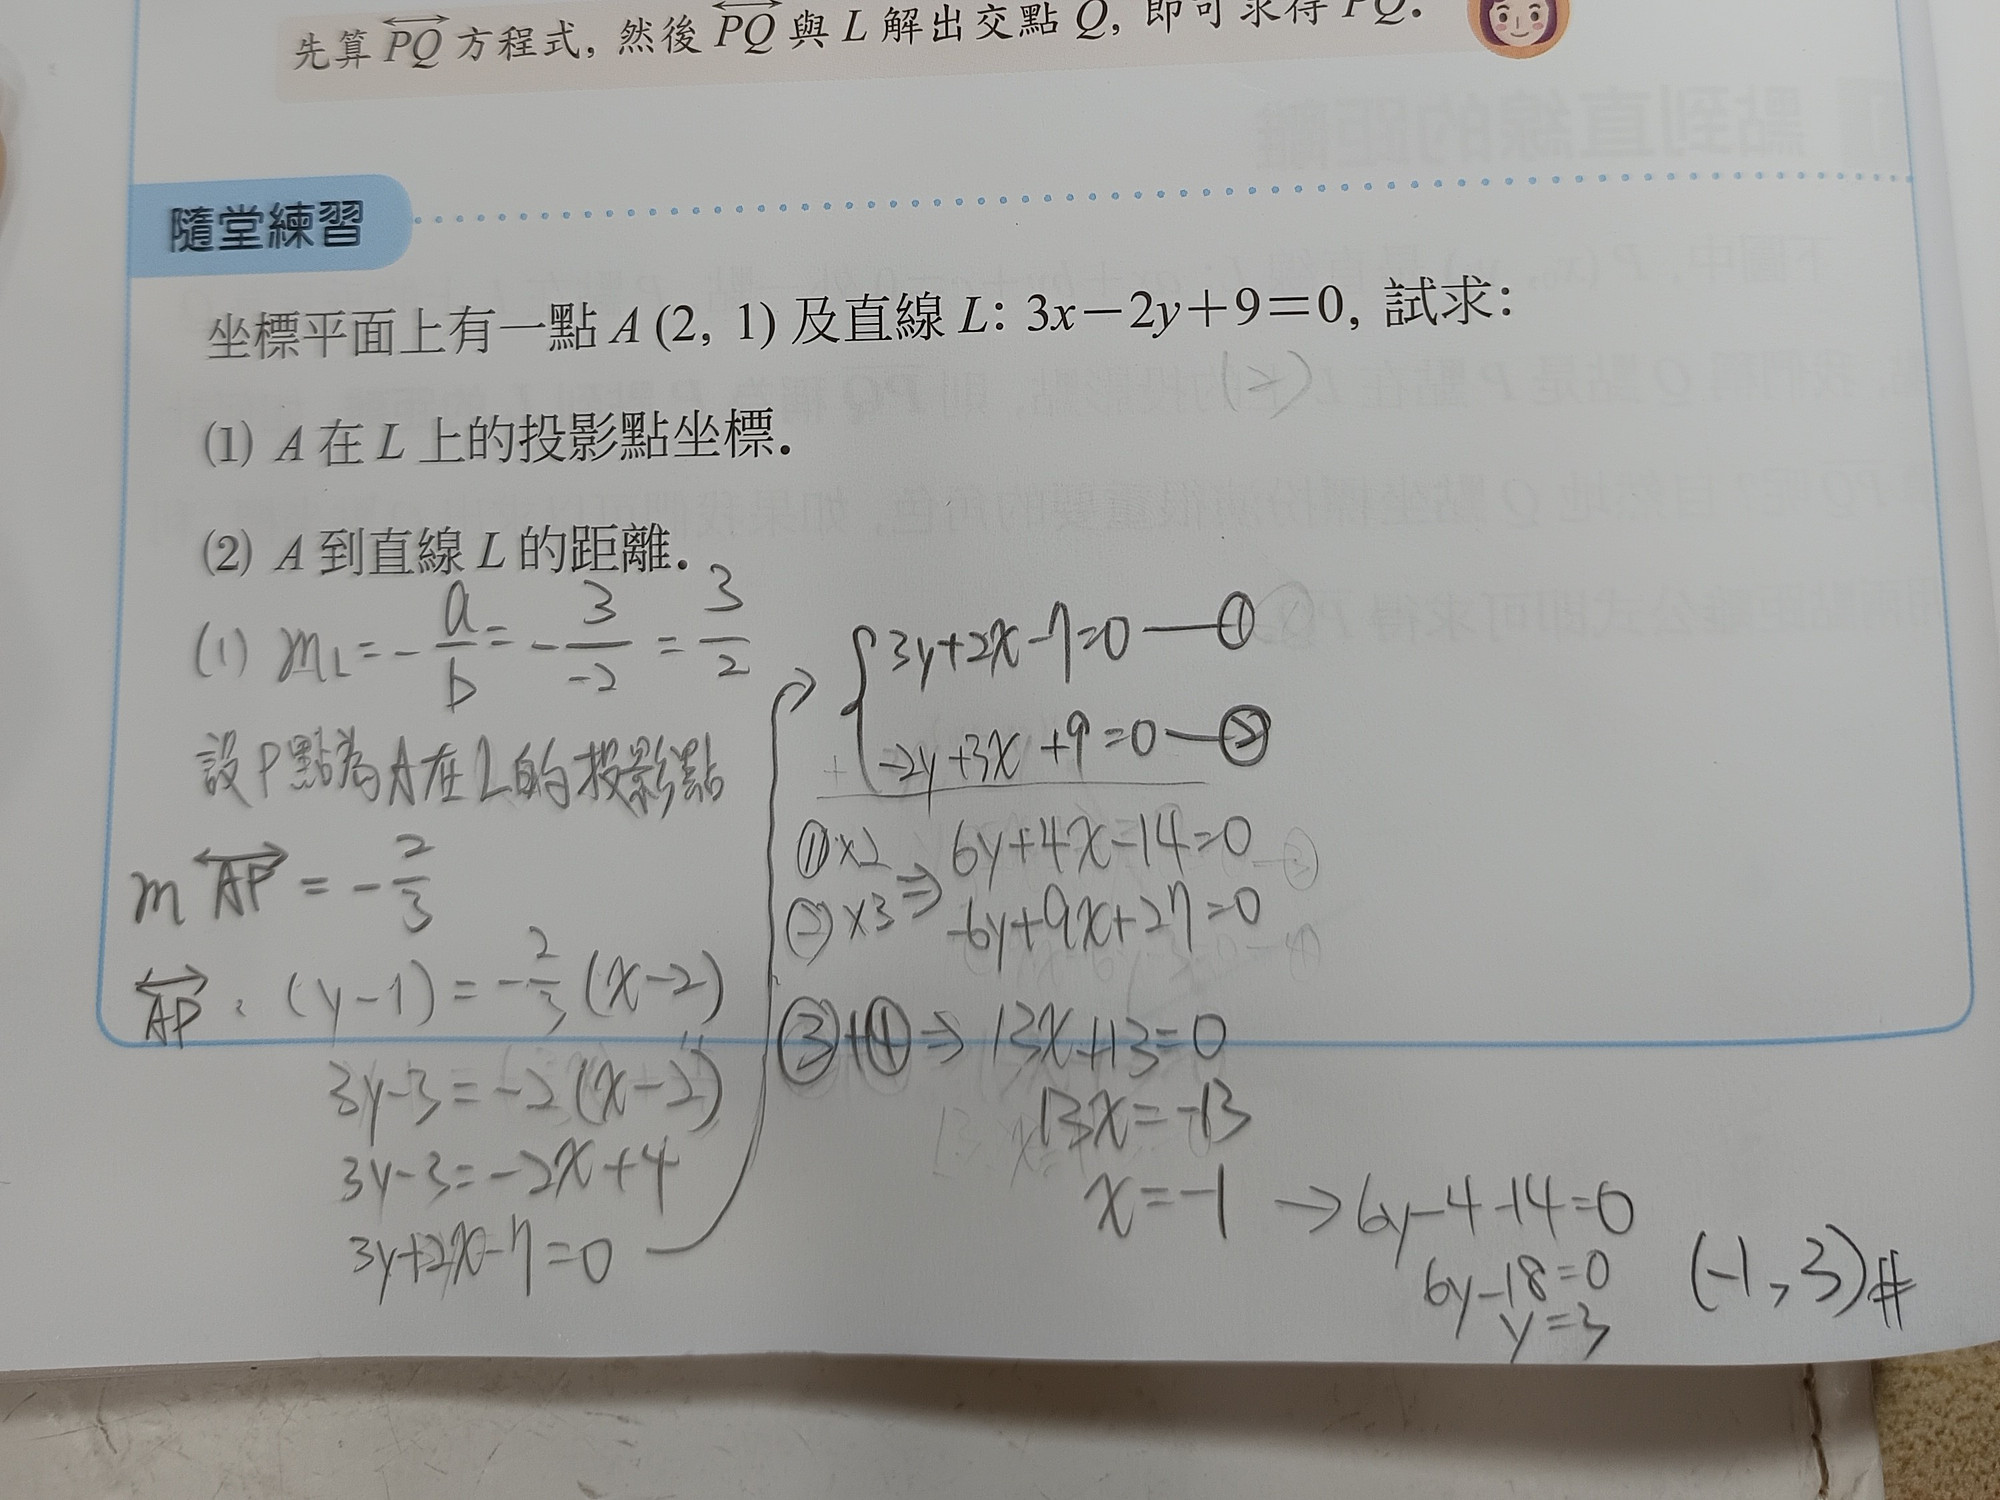 先算 PQ 方程式, 然後 PQ 與 L 解出交點 Q, 即可求得 PQ.
隨堂練習
坐標平面上有一點 A (2, 1) 及直線 L: 3x−2y+9=0, 試求:
(1) A 在 L 上的投影點坐標.
(2) A 到直線 L 的距離.
(1) mL = − a/b = − 3/−2 = 3/2
設P點為A在L的投影點
m AP = − 2/3
AP : (y−1) = − 2/3 (x−2)
3y−3 = −2 (x−2)
3y−3 = −2x+4
3y+2x−7=0
3y+2x−7=0 — ①
+ −2y+3x+9=0 — ②
①×2 ⇒ 6y+4x−14=0
②×3 ⇒ −6y+9x+27=0
③+④ ⇒ 13x+13=0
13x=−13
x=−1 → 6y−4−14=0
6y−18=0
y=3
(−1, 3)#